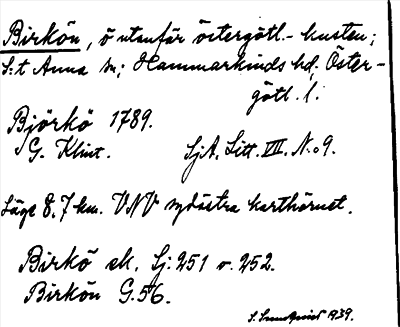 Birkön, ö utanför östergötl.- kusten;
S:t Anna sn; Hammarkinds hd, Öster-
götl. l.
Björkö 1789.
G. Klint. SjA. Litt. VII. N:o 9.
Läge 8,7 km. VNV sydöstra karthörnet.
Birkö ek. Sj. 251 o. 252.
Birkön G. 56.
1939.